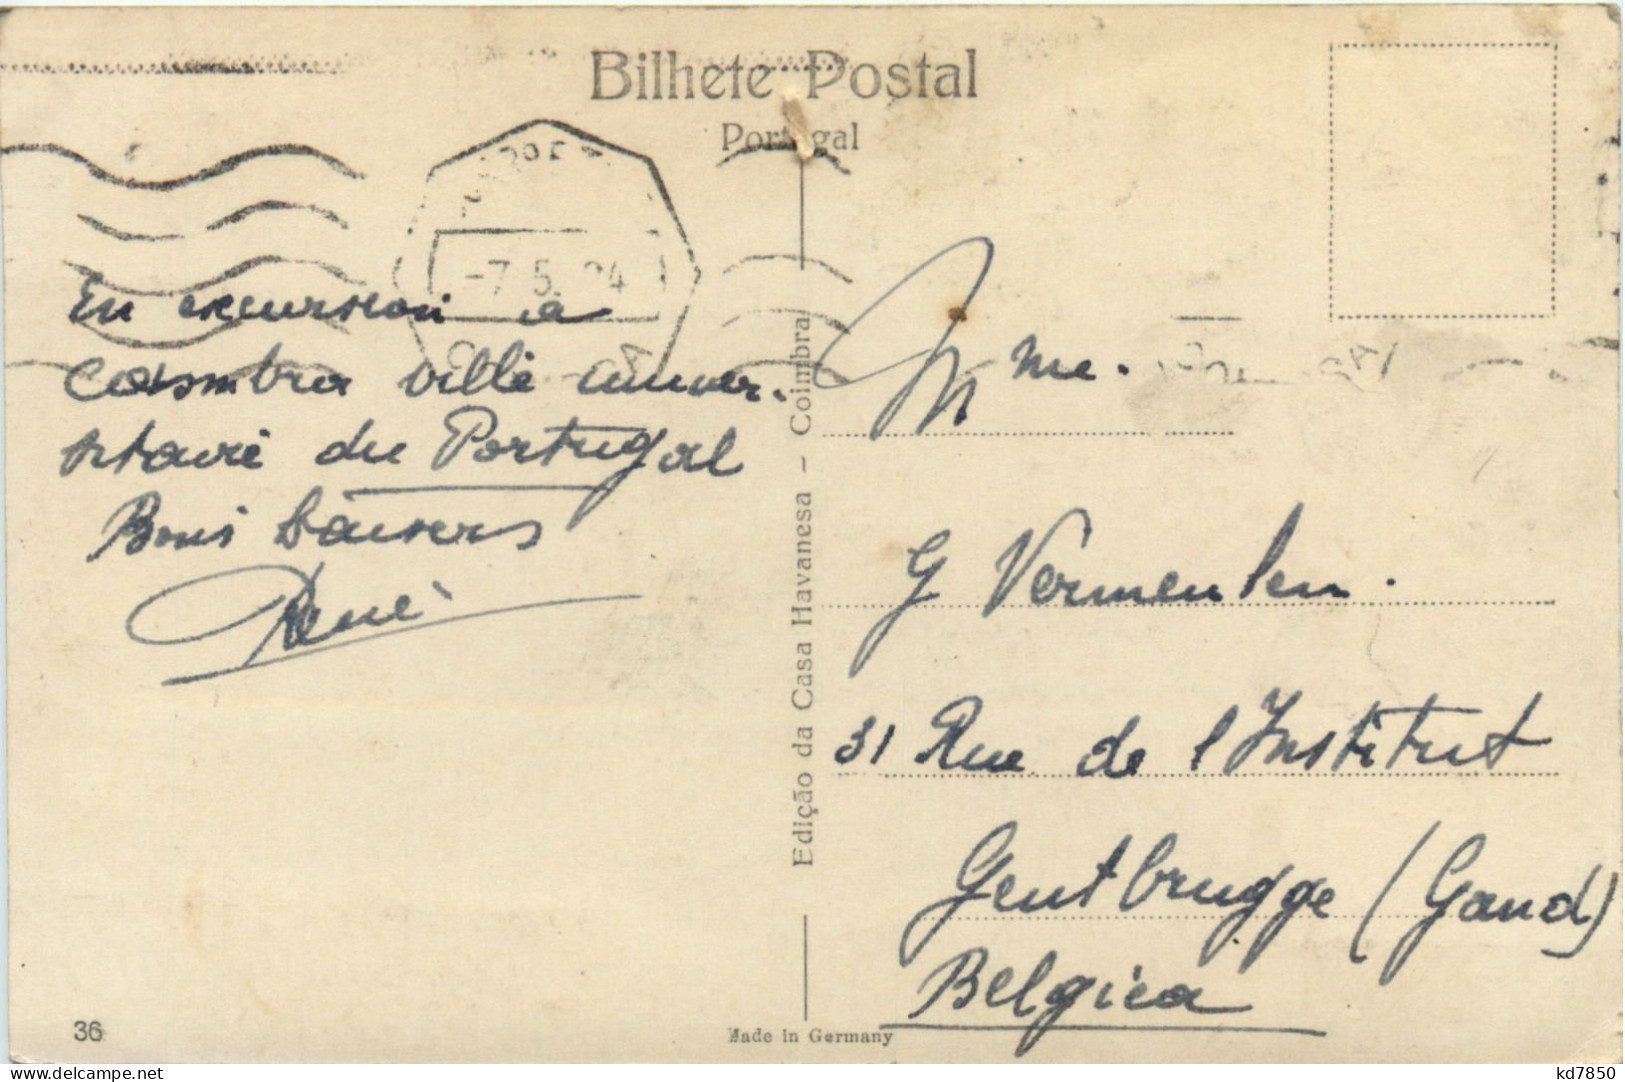 Bilhete Postal
Portugal
-7.5.
En excursion à
Coïmbra ville univer-
sitaire du Portugal
Bons baisers
René
Edição da Casa Havanesa - Coimbra
Mme.
G Vermeulen.
31 Rue de l'Institut
Gentbrugge (Gand)
Belgica
36
Made in Germany
kd7850